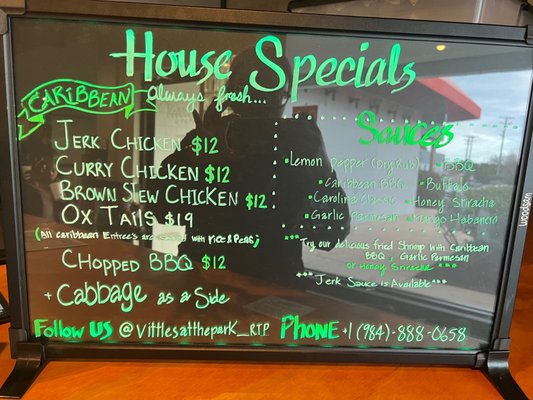 House Specials
CARIBBEAN
Always fresh...
JERK CHICKEN $12
CURRY CHICKEN $12
BROWN STEW CHICKEN $12
OX TAILS $19
(All caribbean Entree's are with rice & peas)
CHOPPED BBQ $12
+ Cabbage as a Side
Sauces
• Lemon Pepper (Dry Rub) • BBQ
• Caribbean BBQ • Buffalo
• Carolina Classic • Honey Sriracha
• Garlic Parmesan • Mango Habanero
*** Try our delicious fried Shrimp with Caribbean
BBQ, Garlic Parmesan
or Honey Sriracha ***
*** Jerk Sauce is Available ***
Follow US @vittlesatthepark_RTP PHONE +1 (984)-888-0658
woodsam